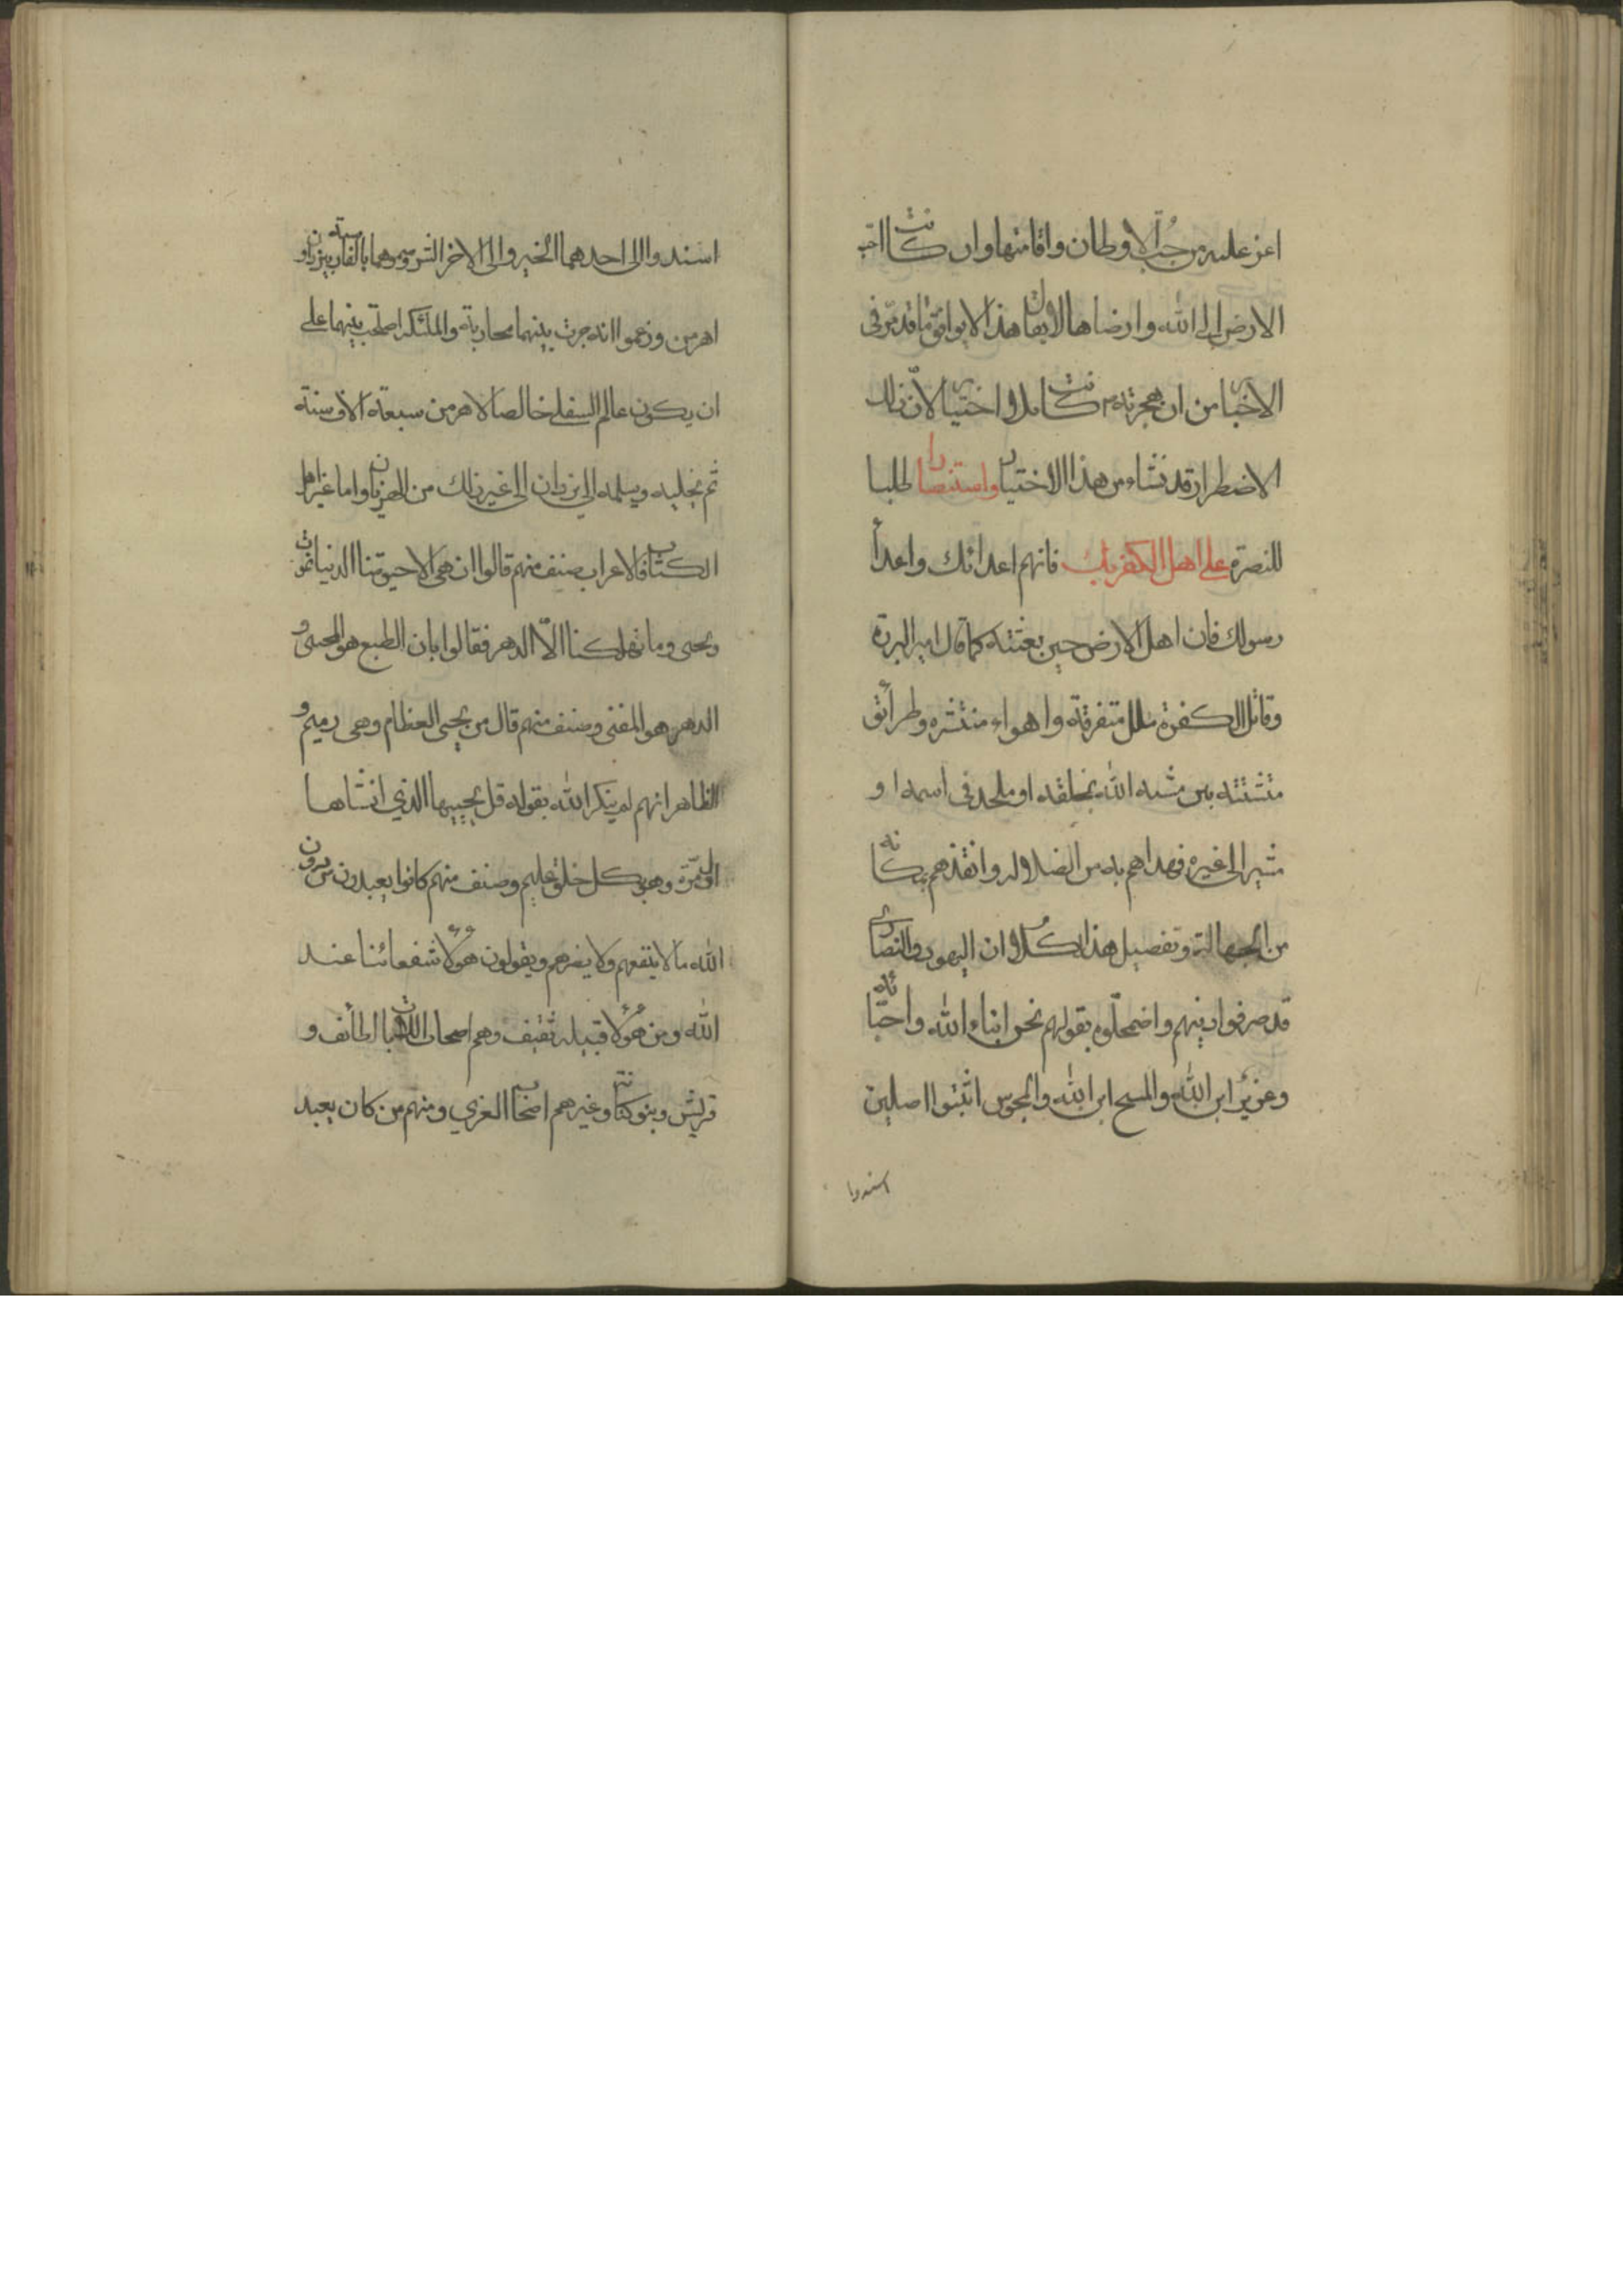 اعز عليه من حُبّ الاوطان واقامتها وان كانت احب
الارض الى الله وارضاها لا يقال هذا لا يوافق ما قد مرّ فى
الاخبار من ان هجرته كانت كامل واختيارى لانّ ذلك
الاضطرار قد نشاء من هذا الاختيار واستنصارا طلبا
للنصرة على اهل الكفر بك فانهم اعدائك واعدأ
رسولك فان اهل الارض حين بعثته كما قال امير البررة
وقاتل الكفرة ملل متفرقة واهواء منتشره وطرائق
متشتته بين مشبه الله بخلقه او ملحد فى اسمه او
مشير الى غيره فهداهم به من الضلاله وانقذهم بمكانه
من الجهالة وتفصيل هذا الكلام ان اليهود والنصارى
قد صرفوا دينهم واضمحلّوه بقولهم نحن ابناء الله واحبّائه
وعزيرٌ ابن الله والمسيح ابن الله والمجوس اثبتوا اصلين
اسندوا
اسندوا الى احدهما الخير والى الاخر الشر وسموهما بالفارسية بيزدان و
اهرمن وزعموا انه جرت بينهما محاربة والملئكه اصلحت بينهما على
ان يكون عالم السفلى خالصا لاهرمن سبعة الاف سنة
ثم يخليه ويسلمه الى يزدان الى غير ذلك من الهزيان واما غير اهل
الكتاب فالاعراب صنف منهم قالوا ان هى الا حيوتنا الدنيا نموت
ونحيى وما يهلكنا الاّ الدهر فقالوا بان الطبع هو المحيى و
الدهر هو المفنى وصنف منهم قال من يحيى العظام وهى رميم و
الظاهر انهم لم ينكر الله بقوله قل يحييها الذي انشاها
اول مرّة وهو بكل خلق عليم وصنف منهم كانوا يعبدون من دون
الله ما لا ينفعهم ولا يضرهم ويقولون هؤلاء شفعائنا عند
الله ومن هؤلاء قبيله ثقيف وهم اصحاب اللات بالطائف و
قريش وبنو كنانة وغيرهم اصحاب العزي ومنهم من كان يعبد